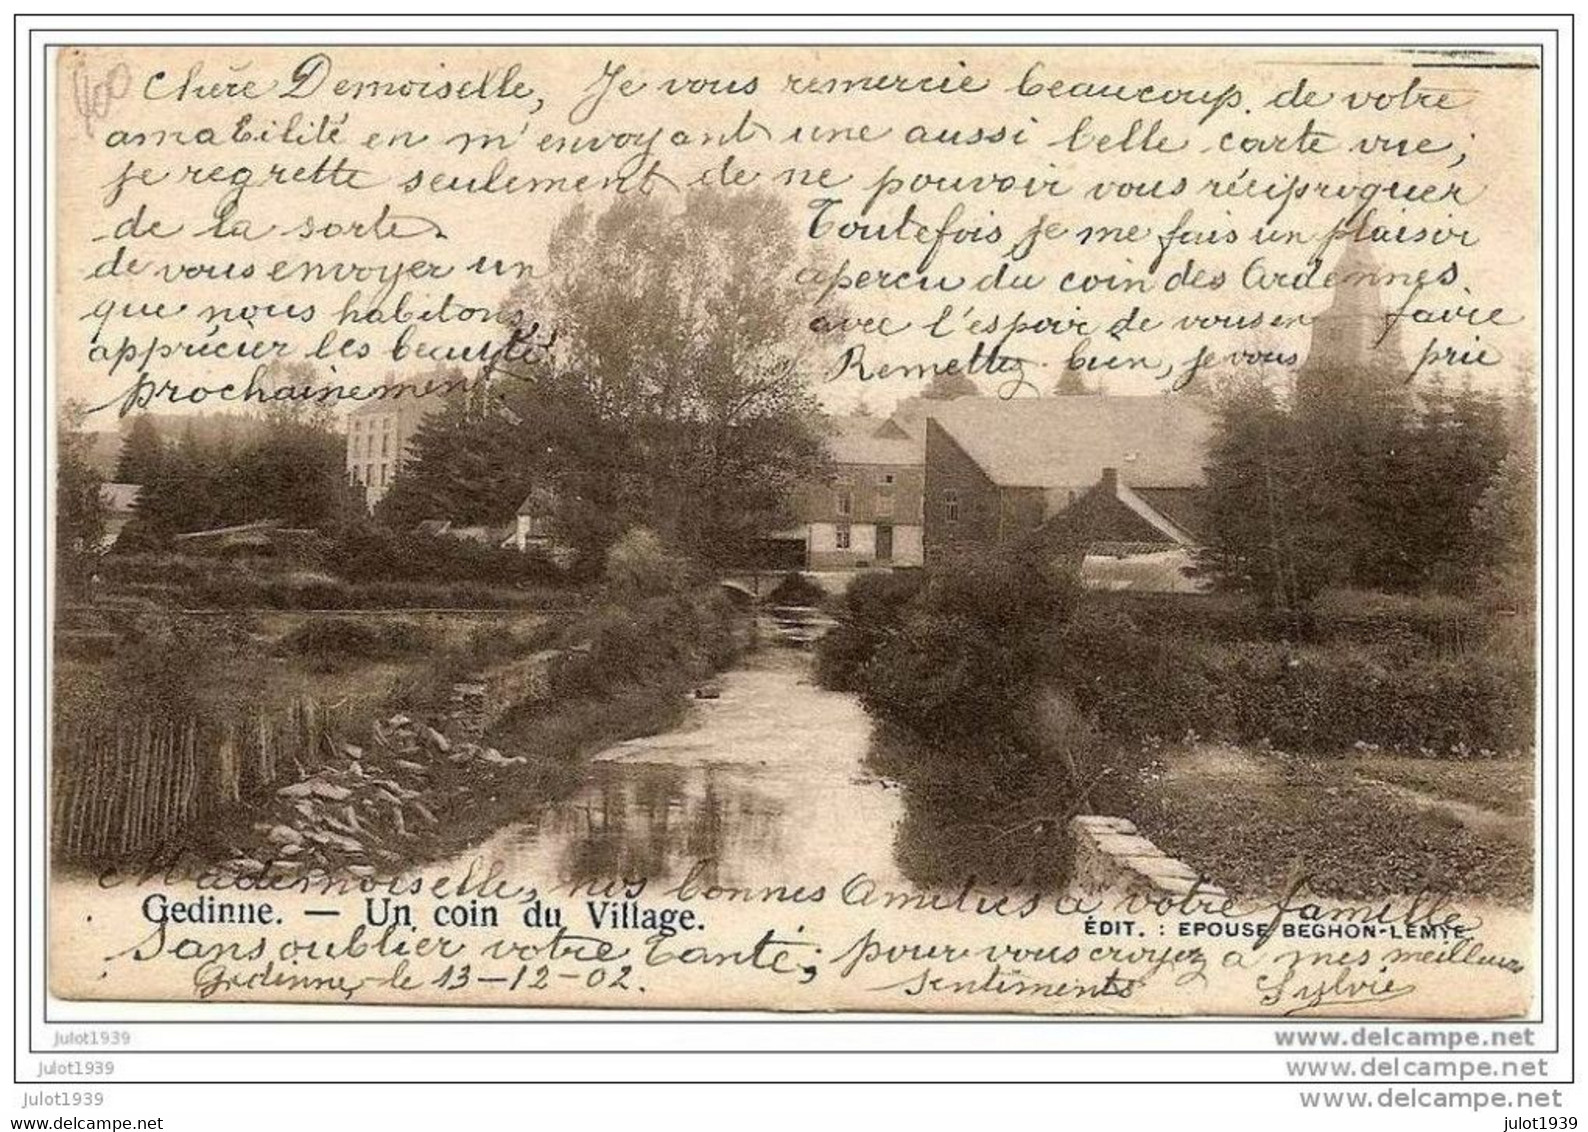 400
Chère Demoiselle, Je vous remercie beaucoup de votre
amabilité en m'envoyant une aussi belle carte vue;
je regrette seulement de ne pouvoir vous réciproquer
de la sorte. Toutefois je me fais un plaisir
de vous envoyer un aperçu du coin des Ardennes
que nous habitons, avec l'espoir de vous en faire
apprécier les beautés Remettez bien, je vous prie
prochainement.
Mademoiselle, nos bonnes Amitiés à votre famille
Gedinne. — Un coin du Village.
ÉDIT. : EPOUSE BEGHON-LEMYE
Sans oublier votre Tante; pour vous croyez a mes meilleurs
Gedinne, le 13-12-02. sentiments Sylvie
julot1939 www.delcampe.net
julot1939 www.delcampe.net
julot1939 www.delcampe.net
www.delcampe.net julot1939